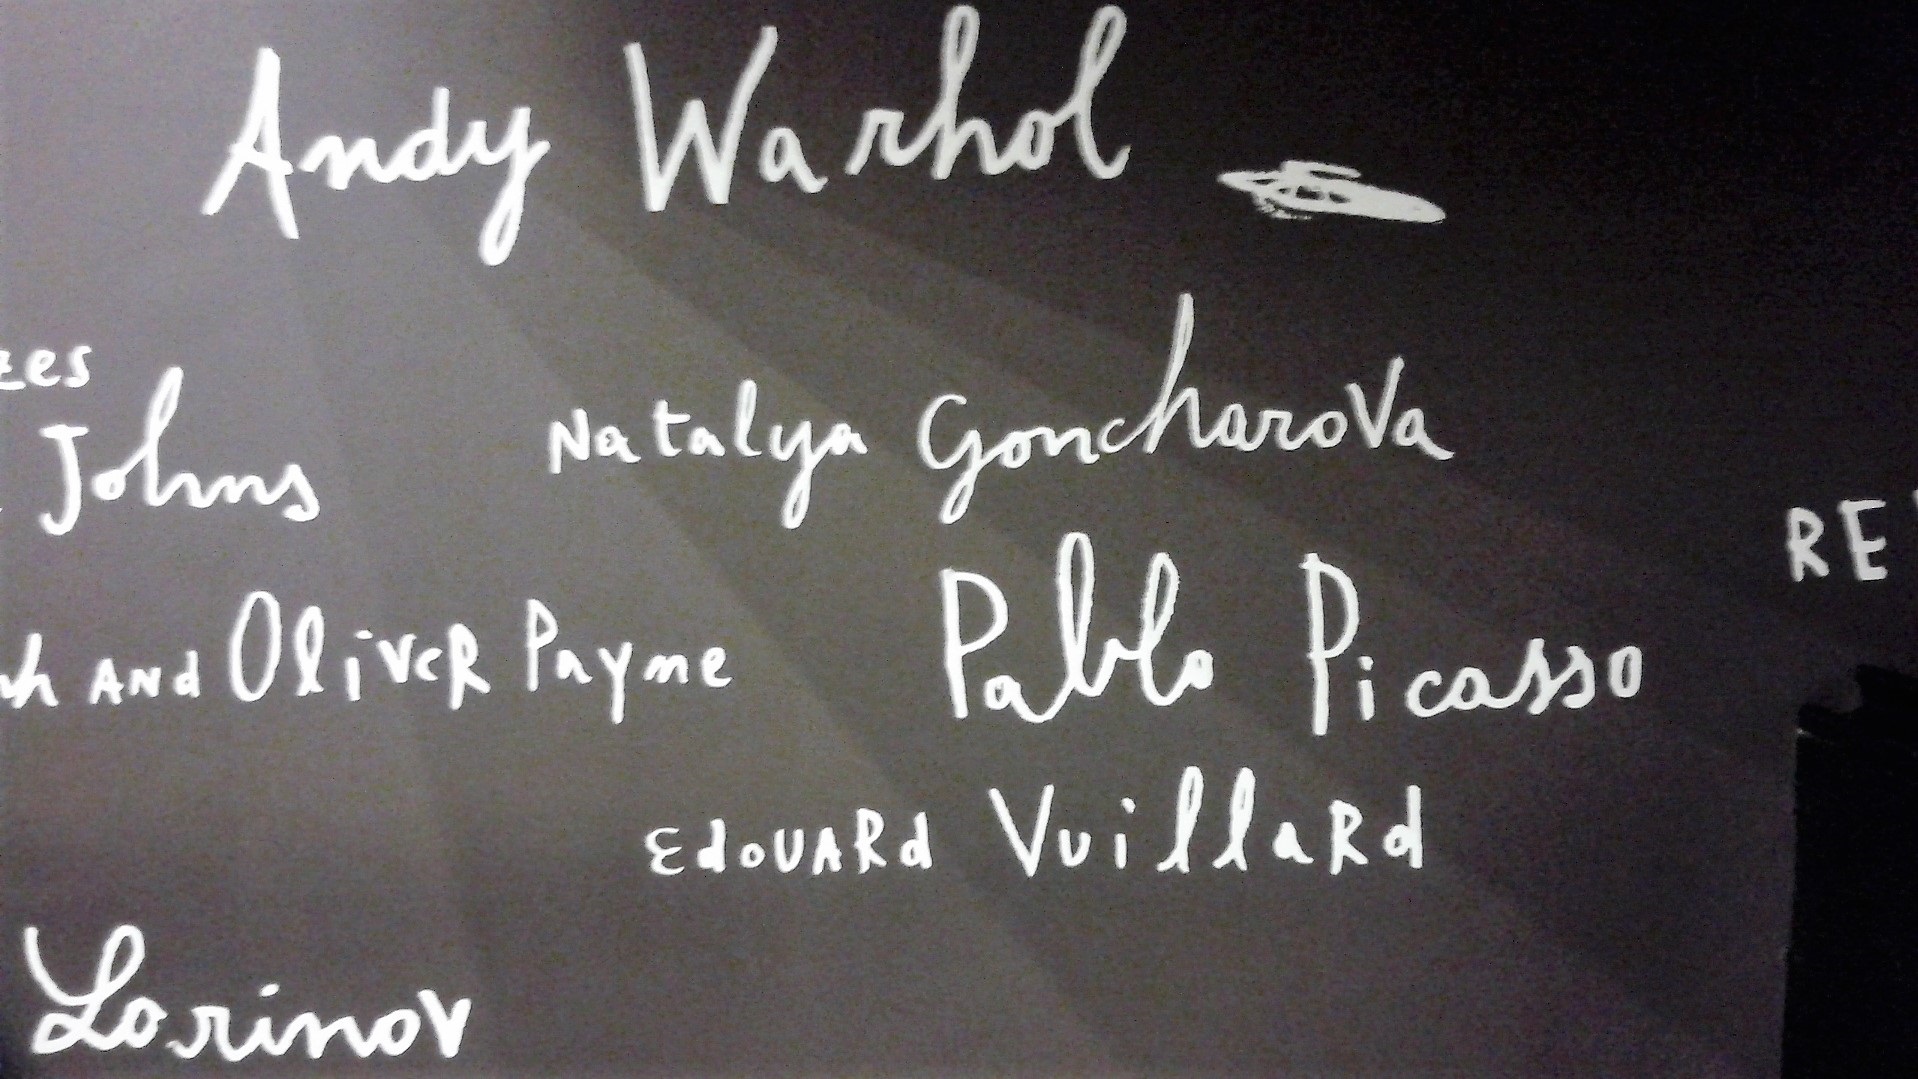 Andy Warhol
zes
Johns
Natalya Goncharova
RE
and Oliver Payne
Pablo Picasso
Edouard Vuillard
Larinov